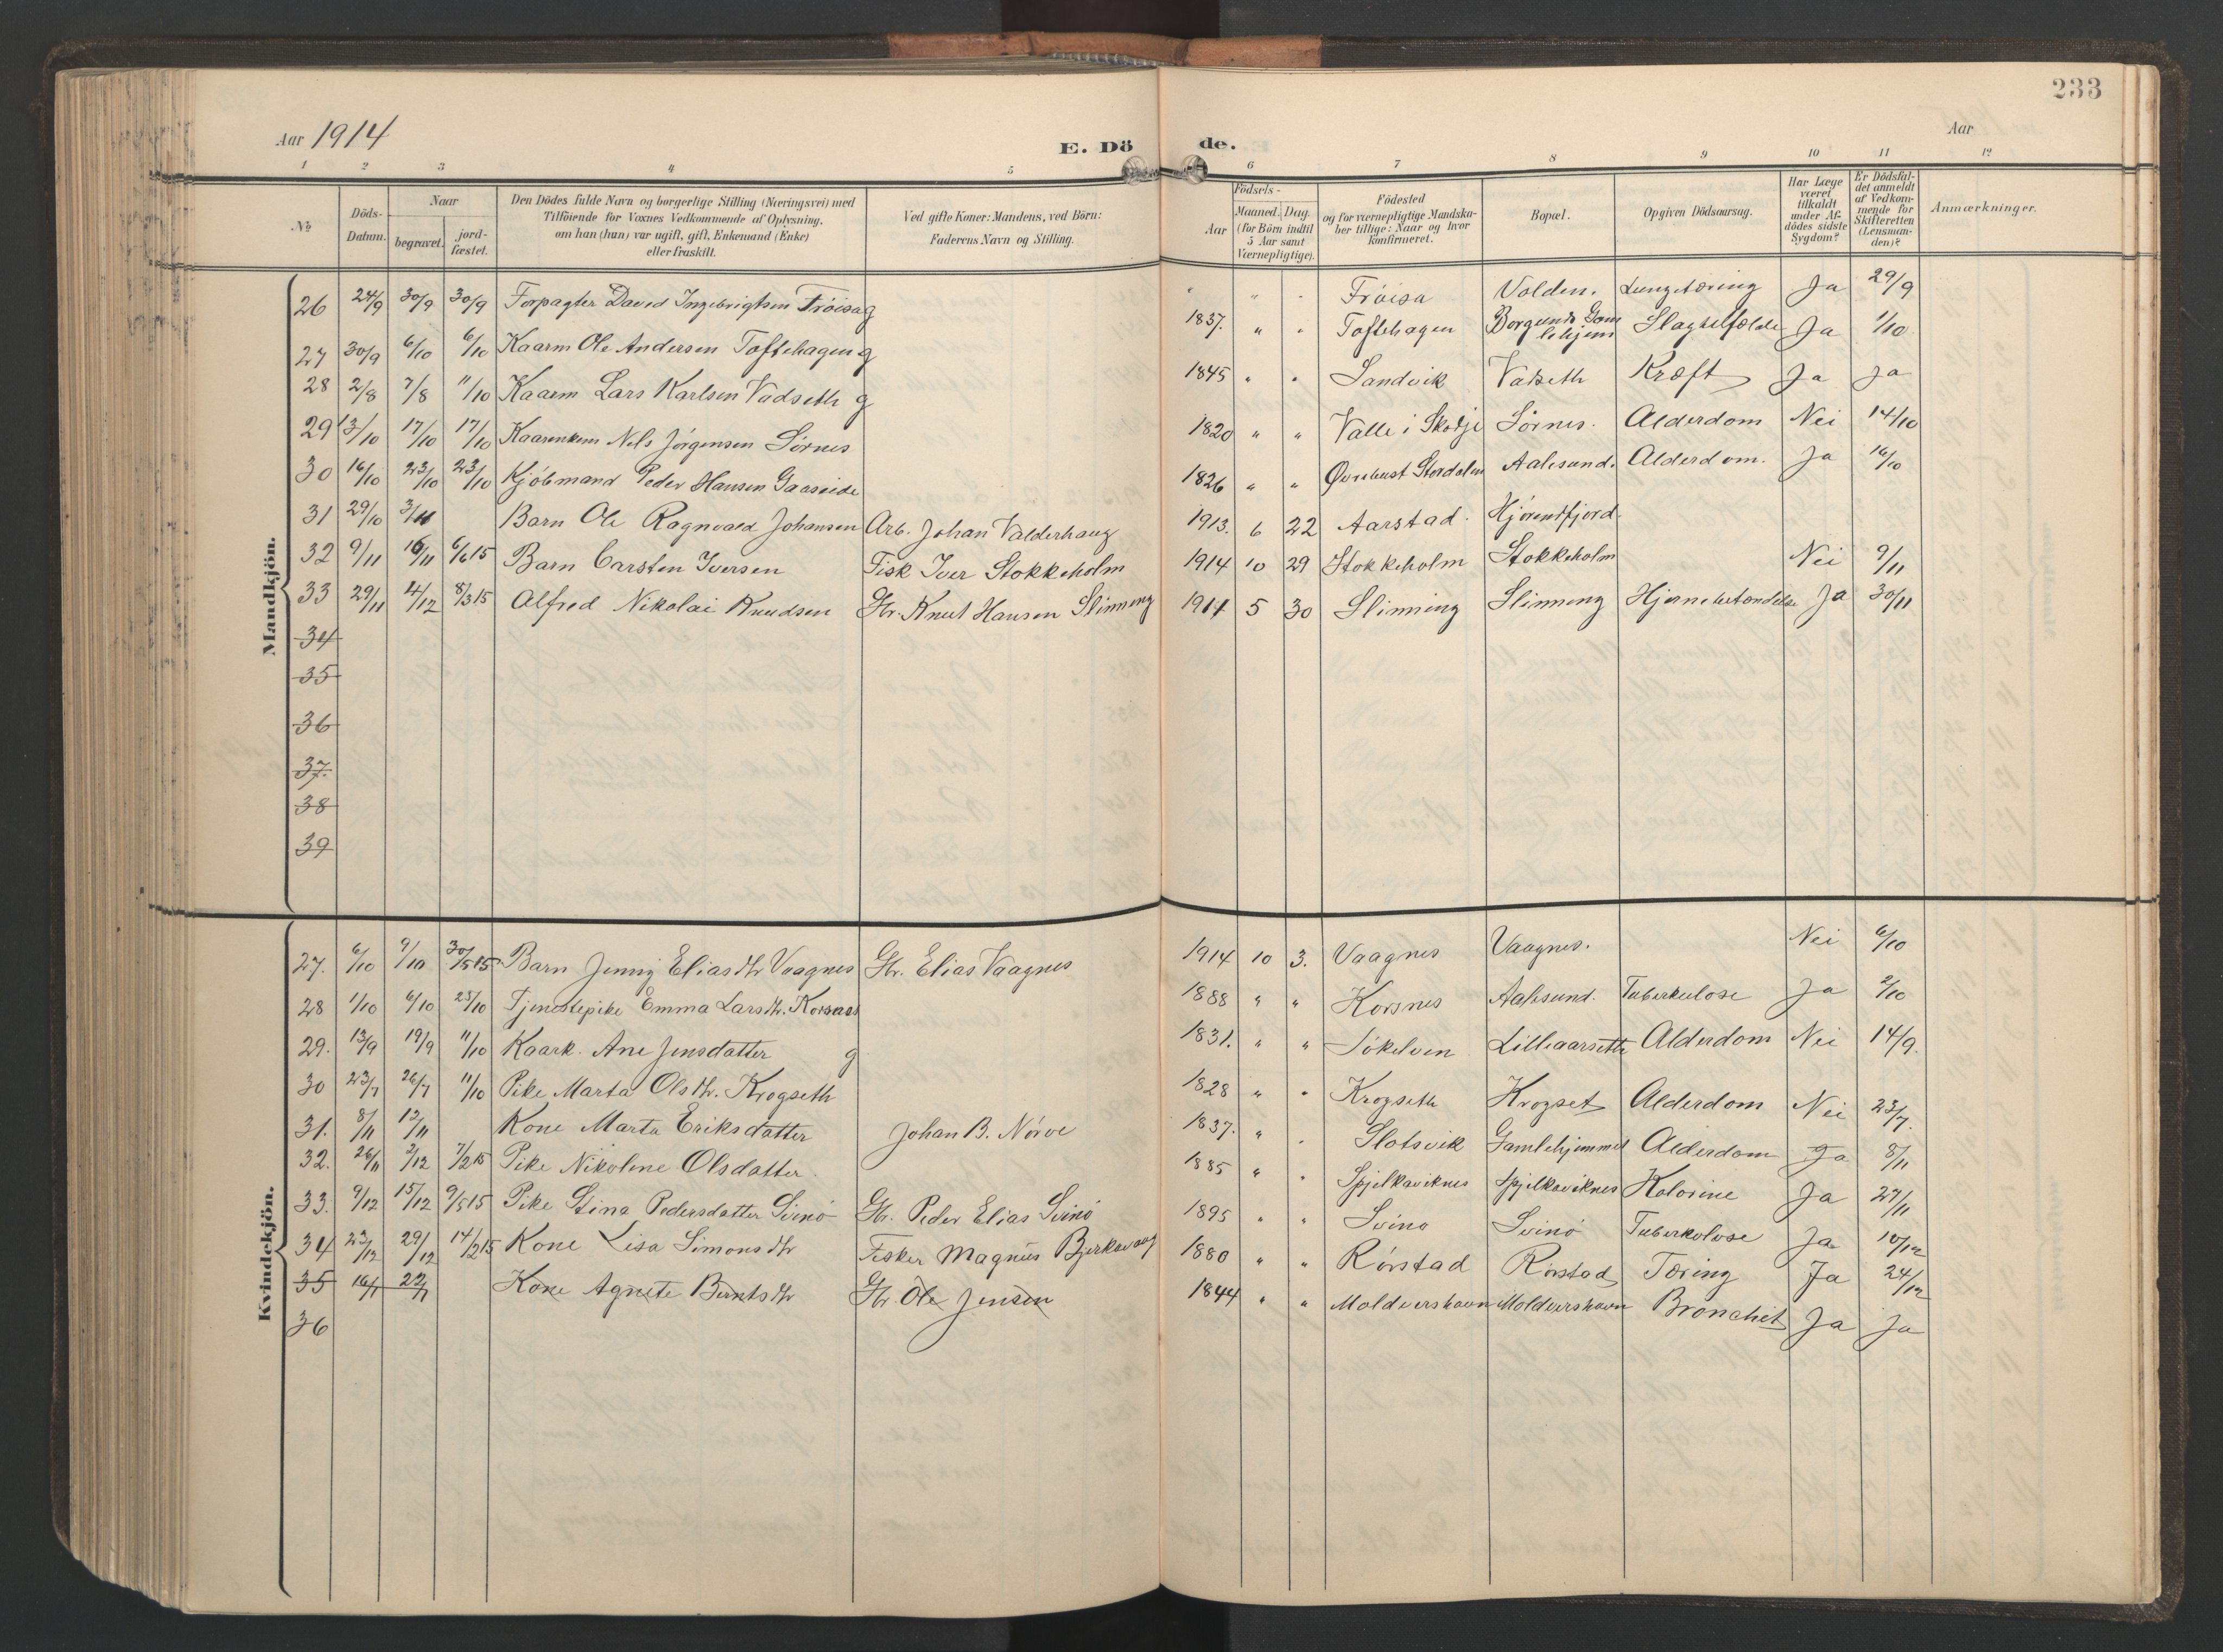 233
Aar 1914
E. Dö de.
Aar
1 2 3 4 5 6 7 8 9 10 11 12
№
Döds-Datum.
Naar
begravet.
jord-fæstet.
Den Dödes fulde Navn og borgerlige Stilling (Næringsvei) med
Tilföiende for Voxnes Vedkommende af Oplysning,
om han (hun) var ugift, gift, Enkemand (Enke)
eller fraskilt.
Ved gifte Koner: Mandens, ved Börn:
Faderens Navn og Stilling.
Födsels-
Aar
Maaned. Dag.
(for Börn indtil
5 Aar samt
Værnepligtige).
Födested
og for værnepligtige Mandska-
ber tillige: Naar og hvor
konfirmeret.
Bopæl.
Opgiven Dödsaarsag.
Har Læge
været
tilkaldt
under Af-
dödes sidste
Sygdom?
Er Dödsfal-
det anmeldt
af Vedkom-
mende for
Skifteretten
(Lensman-
den)?
Anmærkninger.
Mandkjön.
26 24/9 30/9 30/9 Forpagter David Ingebrigtsen Fröisa g " " " Fröisa Volden. Lungetæring Ja 29/9
27 30/9 6/10 6/10 Kaarm Ole Andersen Toftehagen g 1837. " " Toftehagen Borgunds Gamlehjem Slagtilfælde Ja 1/10
28 2/8 7/8 11/10 Kaarm Lars Karlsen Vadseth g 1845 " " Sandvik Vatseth Kræft Ja Ja
29 13/10 17/10 17/10 Kaarenkem Nels Jörgensen Sörnes 1820 " " Valle i Skodje Sörnes. Alderdom Nei 14/10
30 16/10 23/10 23/10 Kjöbmand Peder Hansen Gaaseide 1826 " " Stordalen Aalesund. Alderdom. Ja 16/10
31 29/10 3/11 Barn Ole Ragnvald Johansen Arb. Johan Valderhaug 1913. 6 22 Aarstad. Hjörendfjord.
32 9/11 16/11 6/6 15 Barn Carsten Iversen Fisk Iver Stokkeholm 1914 10 29 Stokkeholm Stokkeholm Nei 9/11
33 29/11 4/12 8/3 15 Alfred Nikolai Knudsen Gbr. Knut Hansen Slinning 1914 5 30 Slinning Slinning Hjernebetændelse Ja 30/11
34
35
36
37.
38
39
Kvindekjön.
27. 6/10 9/10 30/5 15 Barn Jenny Eliasdtr Vaagnes Gbr. Elias Vaagnes 1914 10 3. Vaagnes Vaagnes. Nei 6/10
28 1/10 6/10 25/10 Tjenestepike Emma Larsdtr. Korsnes 1888 " " Korsnes Aalesund. Tuberkulose Ja 2/10
29. 13/9 19/9 11/10 Kaark. Ane Jensdatter g 1831. " " Sökelven Lilleaarseth Alderdom Nei 14/9.
30 23/7 26/7 11/10 Pike Marta Olsdtr. Krogseth 1828 " " Krogseth Krogset Alderdom Nei 23/7.
31. 8/11 13/11 Kone Marta Eriksdatter Johan B. Nörve 1837. " " Slotsvik Gamlehjemmet Alderdom Ja 8/11
32. 26/11 3/12 7/2 15 Pike Nikoline Olsdatter. 1885 " " Spjelkaviknes Spjelkaviknes Ja 27/11
33. 9/12 15/12 9/5 15 Pike Stina Pedersdatter Svinö Gbr. Peder Elias Svinö 1895 " " Svinö Svinö Tuberkulose Ja 10/12
34 23/12 29/12 14/2 15 Kone Lisa Simonsdtr Fisker Magnus Bjerkavaag 1880 " " Rörstad Rörstad Tæring Ja 24/12
35 16/1 22/1 Kone Agnete Berntsdtr Gbr. Ole Jensen 1844 " " Moldvershavn Moldvershavn Bronchit Ja Ja
36